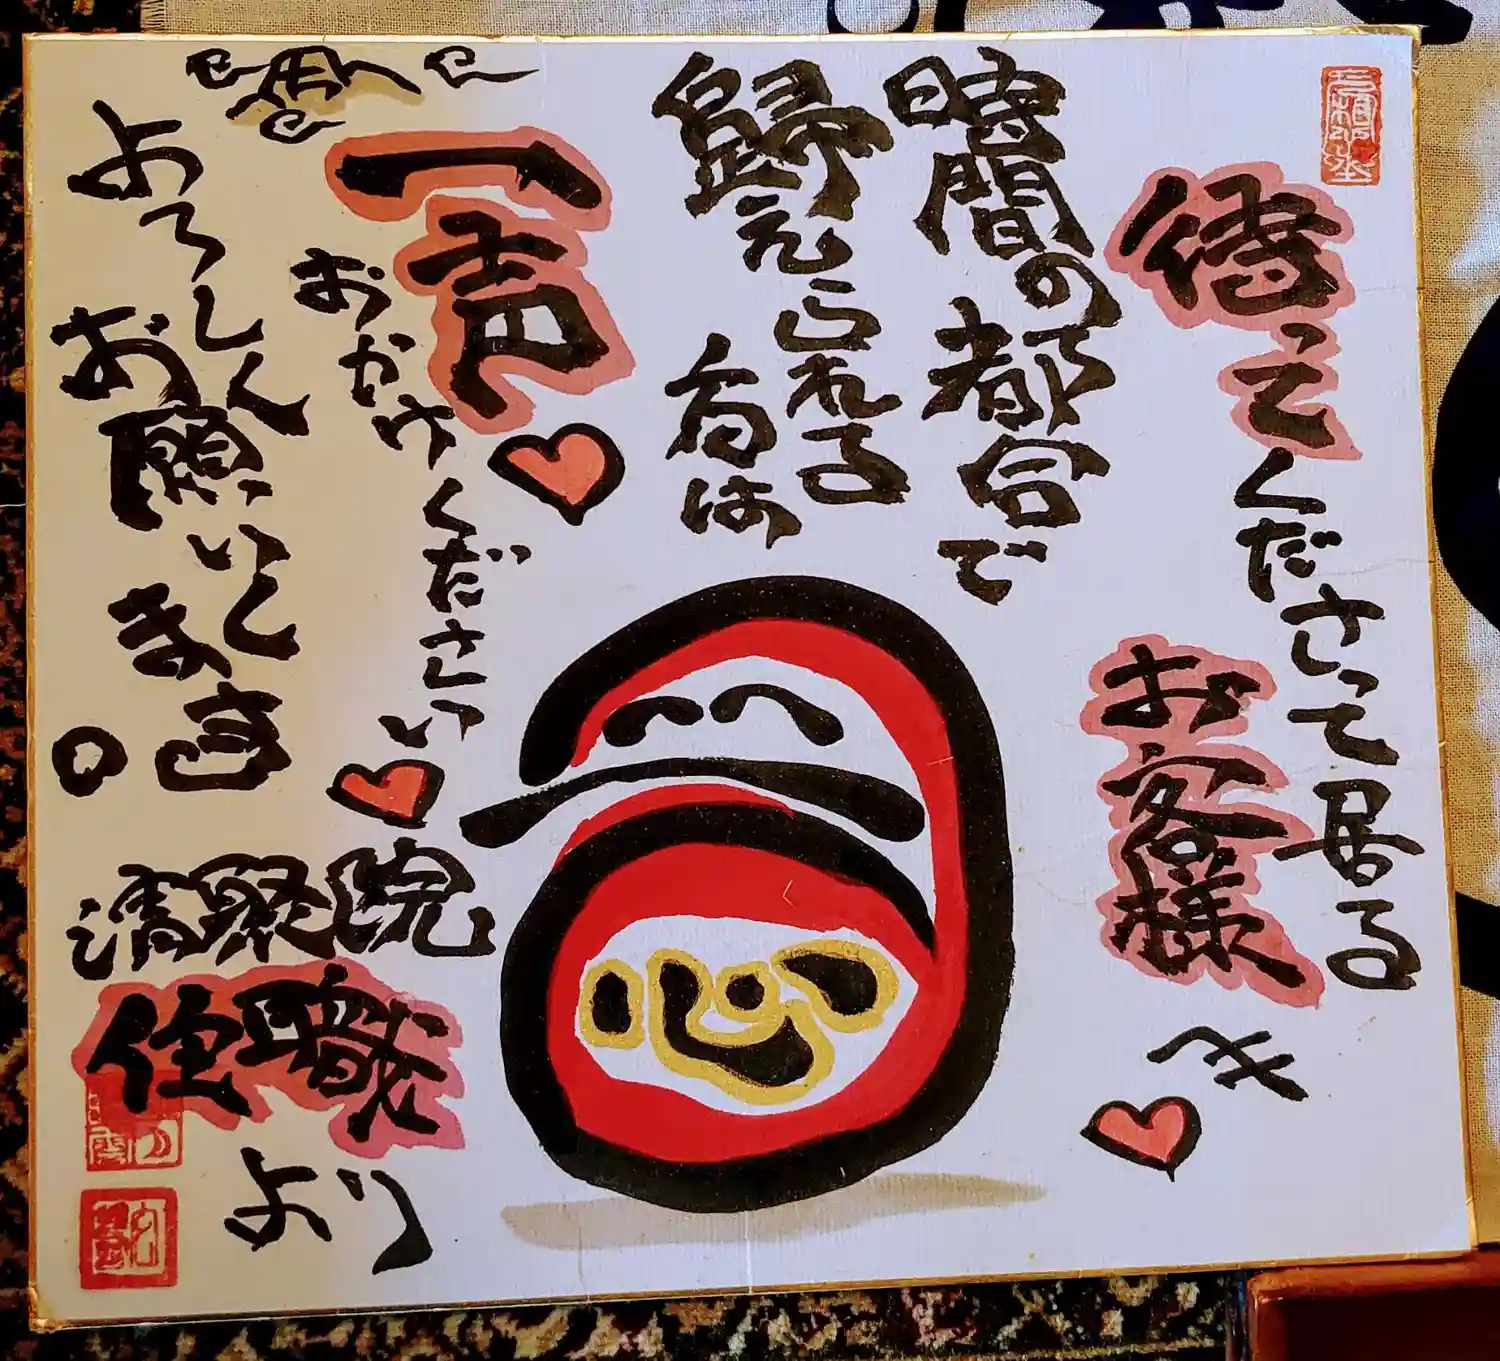 待えくださって居る
お客様へ
時間の都合で
歸えられる
は
一声
おかけください
よろしく
お願いします。
清聚院
住職
より